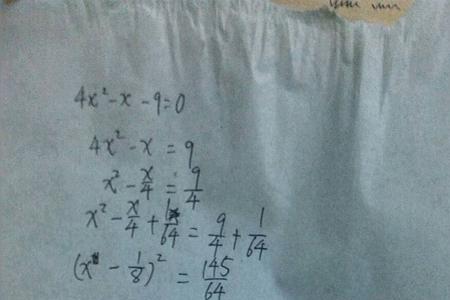 4x² - x - 9 = 0
4x² - x = 9
x² - x/4 = 9/4
x² - x/4 + 1/64 = 9/4 + 1/64
(x - 1/8)² = 145/64